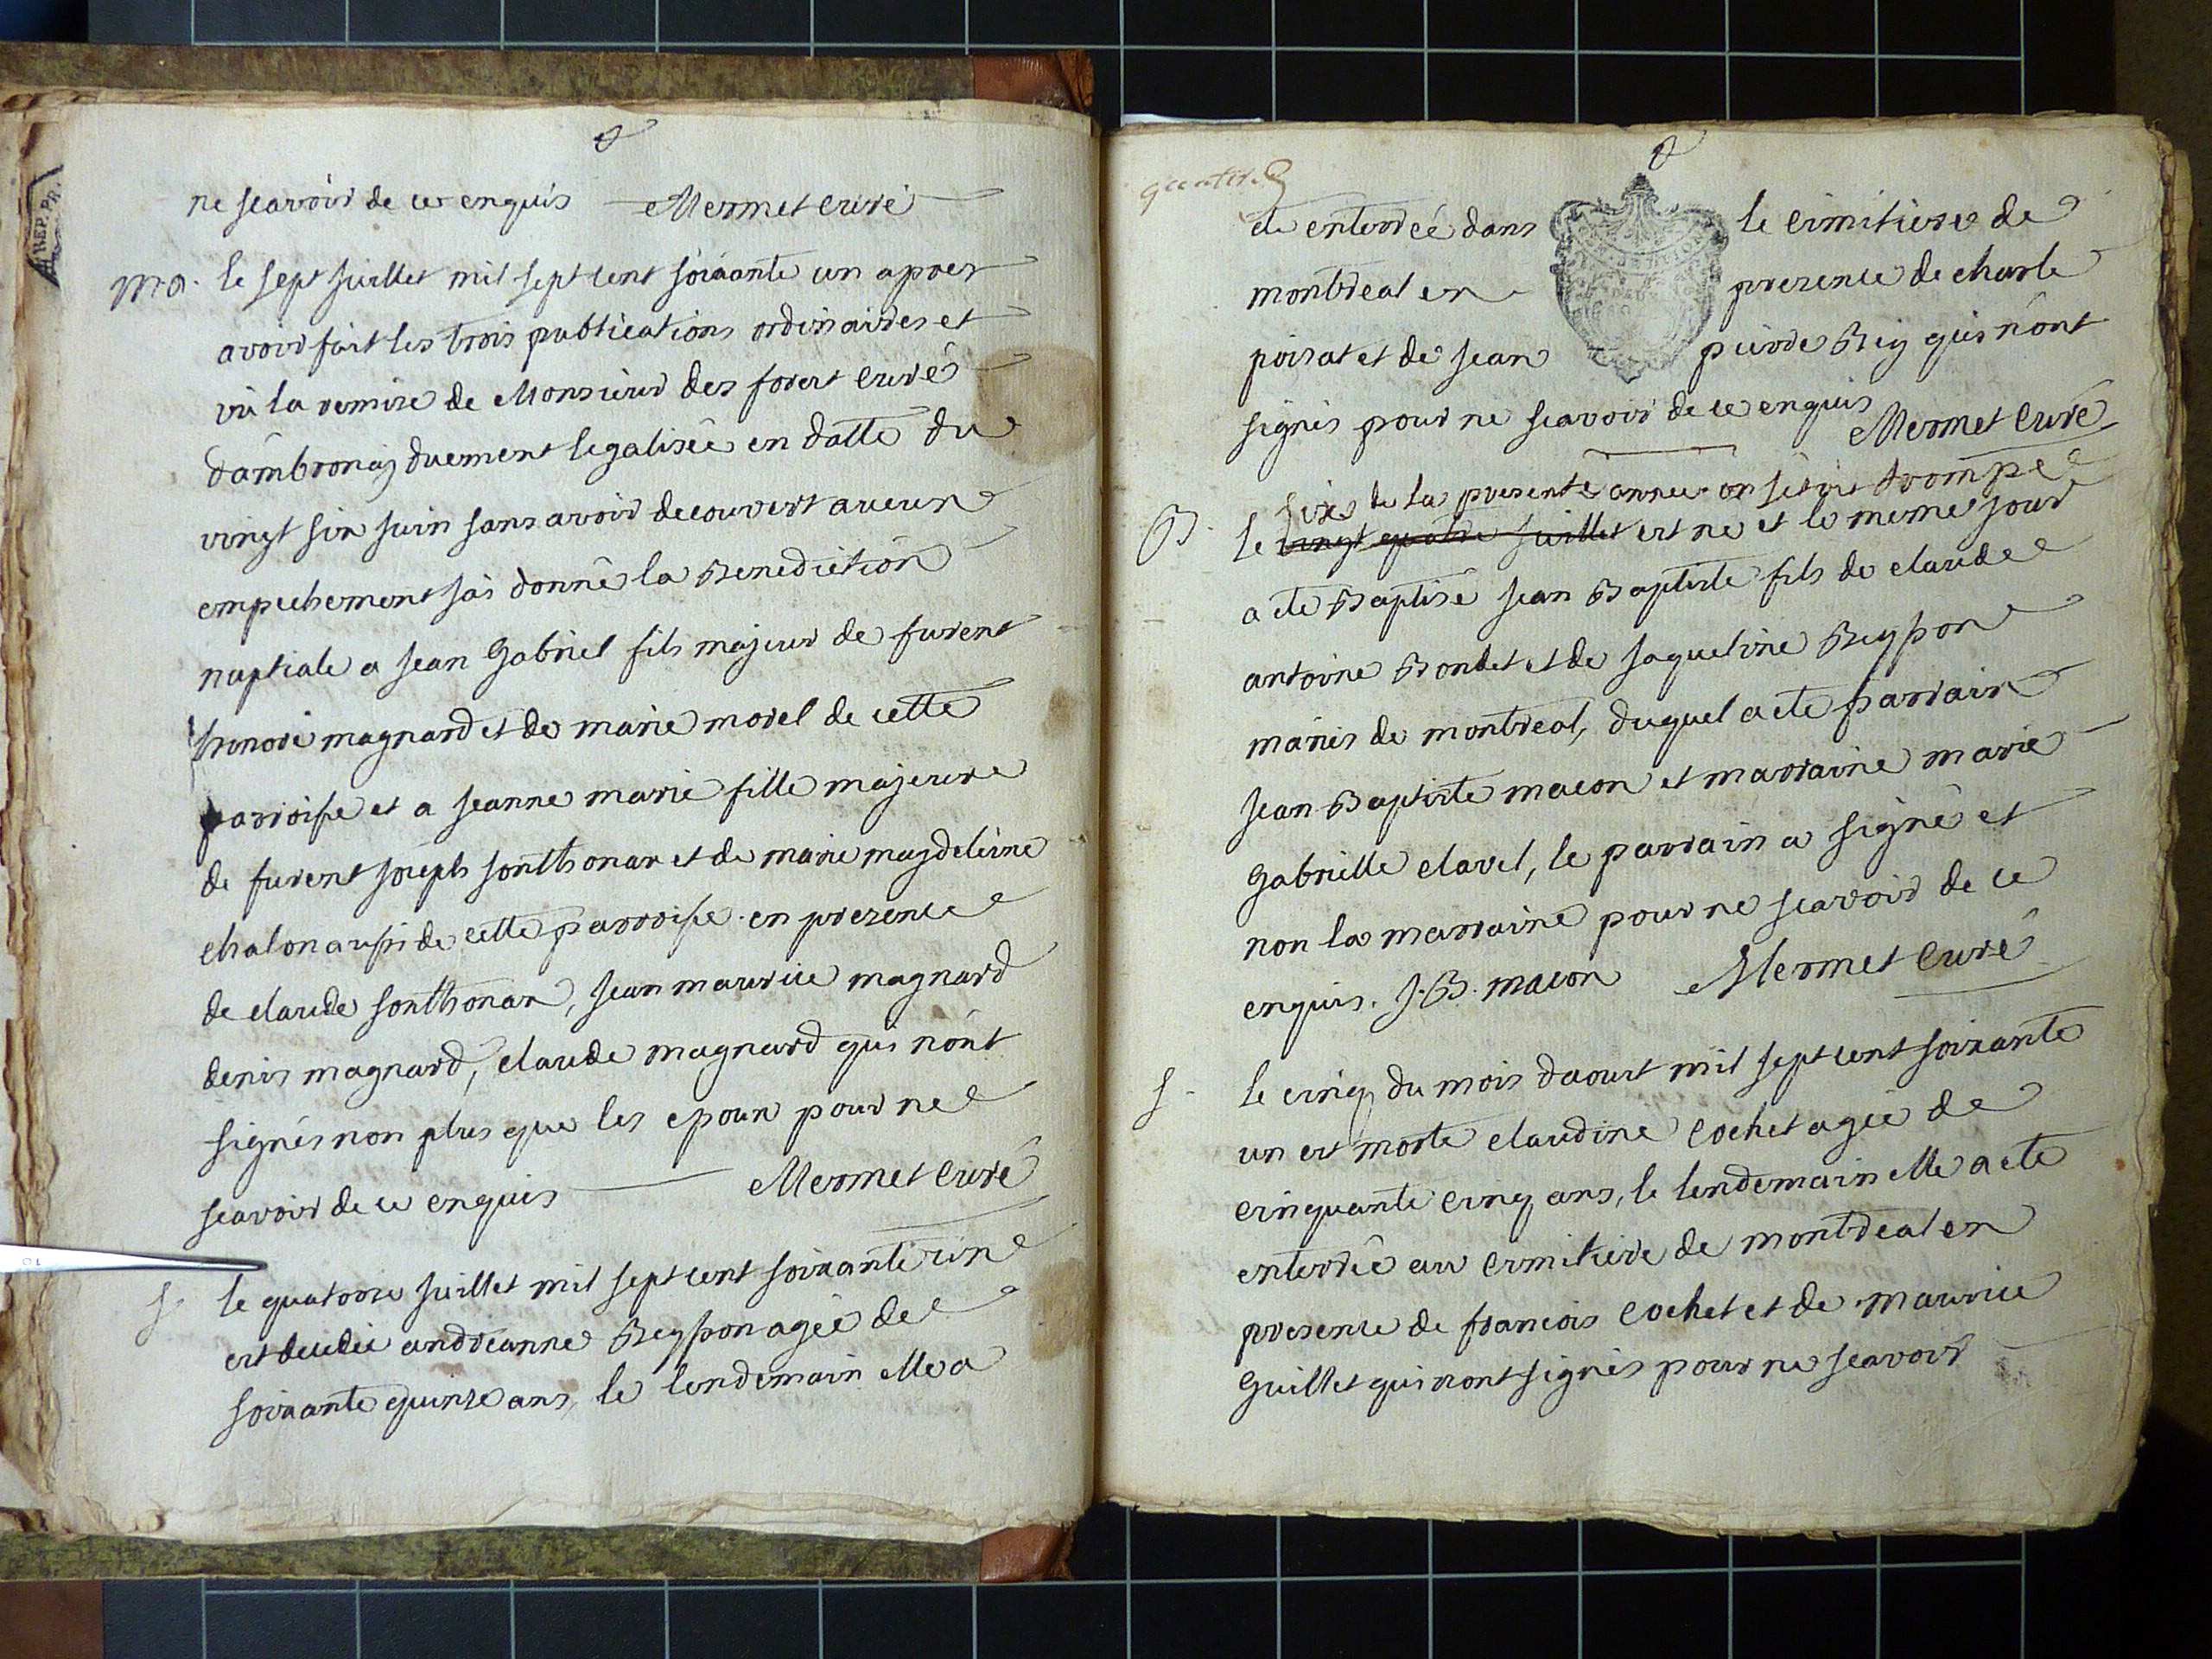 ne scavoir de ce enquis Mermet curé
ma. le sept juillet mil sept cent soixante un apres
avoir fait les trois publications ordinaires et
vû la remise de Monsieur des forest curé
dâmbronay duement legalisée en datte du
vingt six juin sans avoir decouvert aucun
empechement jâi donné la Benediction
nuptiale a jean gabriel fils majeur de furent
honoré magnard et de marie morel de cette
parroisse et a jeanne marie fille majeure
de furent joseph sonthonax et de marie magdeleine
chalon aussi de cette parroisse en presence
de claude sonthonax, jean maurice magnard
denis magnard, claude magnard qui nônt
signés non plus que les epoux pour ne
scavoir de ce enquis Mermet curé
s. le quatorze juillet mil sept cent soixante un
est decedée andréanne Reypon agée de
soixante quinze ans, le lendemain elle a
REP. PR.
été enterrée dans le cimitiere de
montreal en presence de charle
poisat et de jean pierre Rey qui nônt
signés pour ne scavoir de ce enquis
Mermet curé
de la presente année on sétoit trompé
B. le vingt quatre juillet est ne et le meme jour
a ete Baptisé jean Baptiste fils de claude
antoine Bondet et de jaqueline Reypon
mariés de montreal, duquel a ete parrain
jean Baptiste macon et marraine marie
gabrielle clavel, le parrain a signé et
non la marraine pour ne scavoir de ce
enquis. J. B. macon Mermet curé
s. le cinq du mois daoust mil sept cent soixante
un est morte claudine cochet agée de
cinquante cinq ans, le lendemain elle a ete
enterrée au cimitiere de montreal en
presence de francois cochet et de maurice
guillet qui nont signés pour ne scavoir